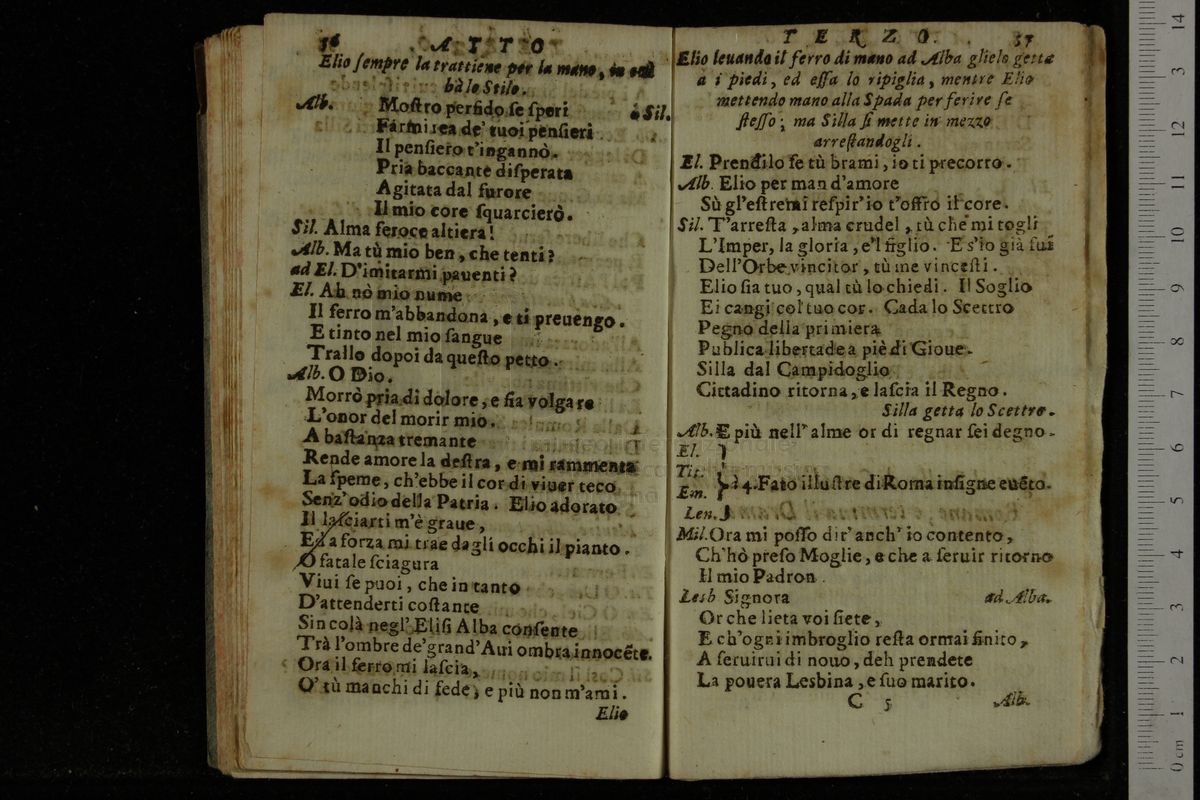 56 ATTO
Elio ſempre la trattiene per la mano, in cui
hà lo Stilo.
Alb. Moſtro perfido ſe ſperi à Sil.
Farmi rea de' tuoi penſieri
Il penſiero t'ingannò.
Pria baccante diſperata
Agitata dal furore
Il mio core ſquarcierò.
Sil. Alma feroce altiera!
Alb. Ma tù mio ben, che tenti?
ad El. D'imitarmi pauenti?
El. Ah nò mio nume
Il ferro m'abbandona, e ti preuengo.
E tinto nel mio ſangue
Trallo dopoi da queſto petto.
Alb. O Dio.
Morrò pria di dolore, e ſia volgare
L'onor del morir mio.
A baſtanza tremante
Rende amore la deſtra, e mi rammenta
La ſpeme, ch'ebbe il cor di viuer teco
Senz'odio della Patria. Elio adorato
Il laſciarti m'è graue,
Ed a forza mi trae dagli occhi il pianto.
O fatale ſciagura
Viui ſe puoi, che in tanto
D'attenderti coſtante
Sin colà negl'Eliſi Alba conſente
Trà l'ombre de'grand'Aui ombra innocẽte.
Ora il ferro mi laſcia,
O' tù manchi di fede, e più non m'ami.
Elio
TERZO. 57
Elio leuando il ferro di mano ad Alba glielo getta
à i piedi, ed eſſa lo ripiglia, mentre Elio
mettendo mano alla Spada per ferire ſe
ſteſſo; ma Silla ſi mette in mezzo
arreſtandogli.
El. Prendilo ſe tù brami, io ti precorro.
Alb. Elio per man d'amore
Sù gl'eſtremi reſpir'io t'offro il core.
Sil. T'arreſta, alma crudel, tù che mi togli
L'Imper, la gloria, e'l figlio. E s'io già fui
Dell'Orbe vincitor, tù me vinceſti.
Elio ſia tuo, qual tù lo chiedi. Il Soglio
Ei cangi col tuo cor. Cada lo Scettro
Pegno della primiera
Publica libertade a piè di Gioue.
Silla dal Campidoglio
Cittadino ritorna, e laſcia il Regno.
Silla getta lo Scettro.
Alb. E più nell'alme or di regnar ſei degno.
El.
Tit.
Em. à 4. Fato illuſtre di Roma inſigne euẽto.
Len.
Mil. Ora mi poſſo dir'anch'io contento,
Ch'hò preſo Moglie, e che a ſeruir ritorno
Il mio Padron.
Lesb Signora ad Alba.
Or che lieta voi ſiete,
E ch'ogni imbroglio reſta ormai finito,
A ſeruirui di nouo, deh prendete
La pouera Lesbina, e ſuo marito.
C 5 Alb.
0 cm 1 2 3 4 5 6 7 8 9 10 11 12 13 14